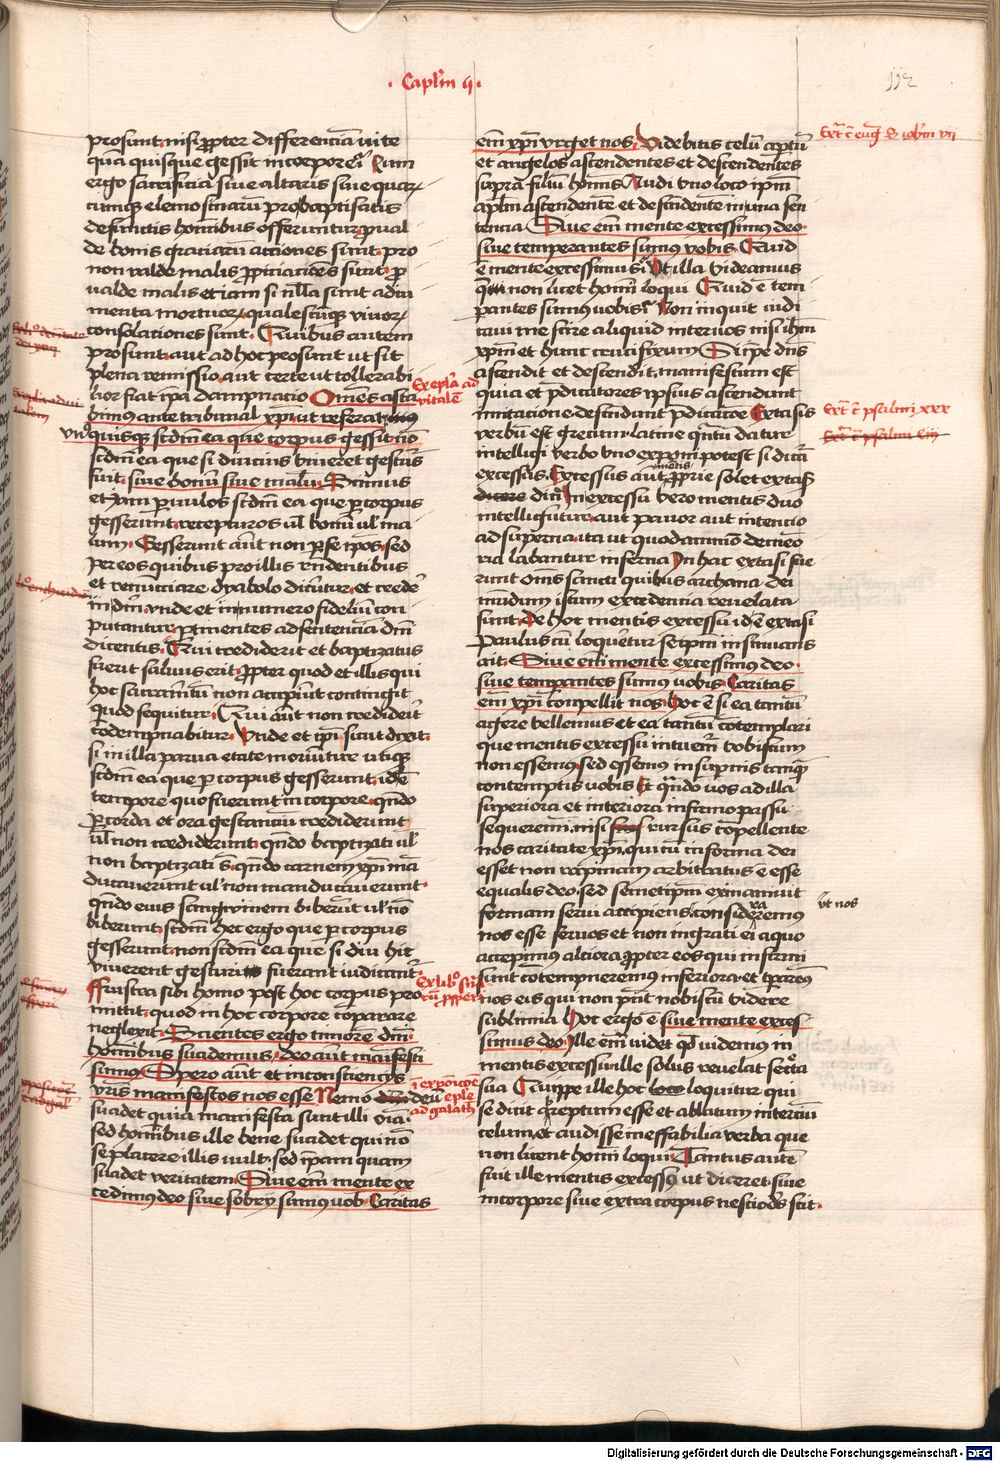 Caplm ij
112
prosunt nisi propter differenciam vite
qua quisque gessit in corpore. Cum
ergo sacrificia siue altaris siue quar
cumque elemosinarum pro baptisatis
defunctis hominibus offeruntur pro val
de bonis gratiarum acciones sunt. pro
non valde malis propiciaciones sunt. pro
valde malis etiam si nulla sunt adiu
menta mortuorum qualescumque viuorum
consolaciones sunt. Quibus autem
prosunt aut ad hoc prosunt ut sit
plena remissio aut certe ut tollerabi
lior fiat ipsa dampnacio Omnes asta
bimus ante tribunal xpi ut referat
vnusquisque secundum ea que corpus gessit non
secundum ea que si diucius viueret gesturus
fuit. siue bonum siue malum. Scimus
etiam paruulos secundum ea que per corpus
gesserunt recepturos vel bonum vel ma
lum. Gesserunt autem non per se ipsos sed
per eos quibus pro illis respondentibus
et renunciare dyabolo dicuntur et crede
in deum vnde et in numero fidelium con
putantur pertinentes ad sentenciam domini
dicentis. Qui crediderit et baptizatus
fuerit saluus erit propter quod et illis qui
hoc sacramentum non accipiunt contingit
quod sequitur. Qui autem non crediderit
condempnabitur. Vnde et ipsi sicut dixi
si in illa parua etate moriuntur utique
secundum ea que per corpus gesserunt. id est
tempore quo fuerunt in corpore quando
per corda et ora gestancium crediderunt
vel non crediderunt quando baptizati vel
non baptizati sunt quando carnem xpi man
ducauerunt vel non manducauerunt
quando eius sanguinem biberunt vel non
biberunt. secundum hec ergo que per corpus
gesserunt non secundum ea que si diu hic
viuerent gesturi fuerant iudicantur
Frustra sibi homo post hoc corpus pro
mittit quod in hoc corpore comparare
neglexit. Scientes ergo timorem domini
hominibus suademus. deo autem manifesti
sumus. Spero autem et in consciencijs
vestris manifestos nos esse Nemo deum
suadet quia manifesta sunt illi omnia
sed hominibus ille bene suadet qui non
se placere illis vult. sed ipsam quam
suadet veritatem. Siue enim mente ex
cedimus deo siue sobrij sumus vobis Caritas
Ex epla ad
vitale
Ex libro snia
rum prosperi
i exposicione
eple
ad galath
enim xpi vrget nos. Videbitis celum apertum
et angelos ascendentes et descendentes
supra filium hominis. Audi vno loco ipsum
apostolum ascendente et descendente in una sen
tencia Siue enim mente excessimus deo
siue temperantes sumus vobis. Quid
est mente excessimus. Ut illa videamus
que non licet homini loqui Quid est tem
perantes sumus uobis. Non inquit iudi
caui me scire aliquid inter vos nisi ihesum
xpm et hunc crucifixum Si ipse dominus
ascendit et descendit. manifestum est
quia et predicatores ipsius ascendunt
imitacione descendunt predicacione Extasis
verbum est grecum latine quantum datur
intelligi verbo vno exponi potest si dicatur
excessus. Excessus aut mentis proprie solet extasis
dici In excessu vero mentis duo
intelliguntur aut pauor aut intencio
ad superna. ita ut quodammodo de memo
ria labantur inferna In hac extasi fue
runt omnes sancti quibus archana dei
mundum istum excedencia reuelata
sunt. De hoc mentis excessu id est extasi
Paulus cum loqueretur seipsum insinuans
ait. Siue enim mente excessimus deo.
siue temperantes sumus uobis. Caritas
enim xpi compellit nos. Hoc est si ea tantum
agere vellemus et ea tantum contemplari
que mentis excessu intuemur vobiscum
non essemus. sed essemus in supernis tamquam
contemptis uobis Et quando uos ad illa
superiora et interiora infirmo passu
sequeremini. nisi rursus compellente
nos caritate xpi. qui cum in forma dei
esset non rapinam arbitratus est esse
equalis deo. sed semetipsum exinaniuit
formam serui accipiens consideraremus
nos esse seruos et non ingrati ei a quo
accepimus alciora propter eos qui infirmi
sunt contempneremus inferiora et temperaremus
nos eis qui non possunt nobiscum videre
sublimia Hoc ergo est siue mente exces
simus deo. Ille enim videt quod videmus in
mentis excessu. ille solus reuelat secreta
sua Quippe ille hoc loquitur qui
se dicit arreptum esse et ablatum in tercium
celum et audisse ineffabilia verba que
non licent homini loqui. Tantus autem
fuit ille mentis excessus ut diceret. siue
in corpore siue extra corpus nescio deus scit.
vt nos